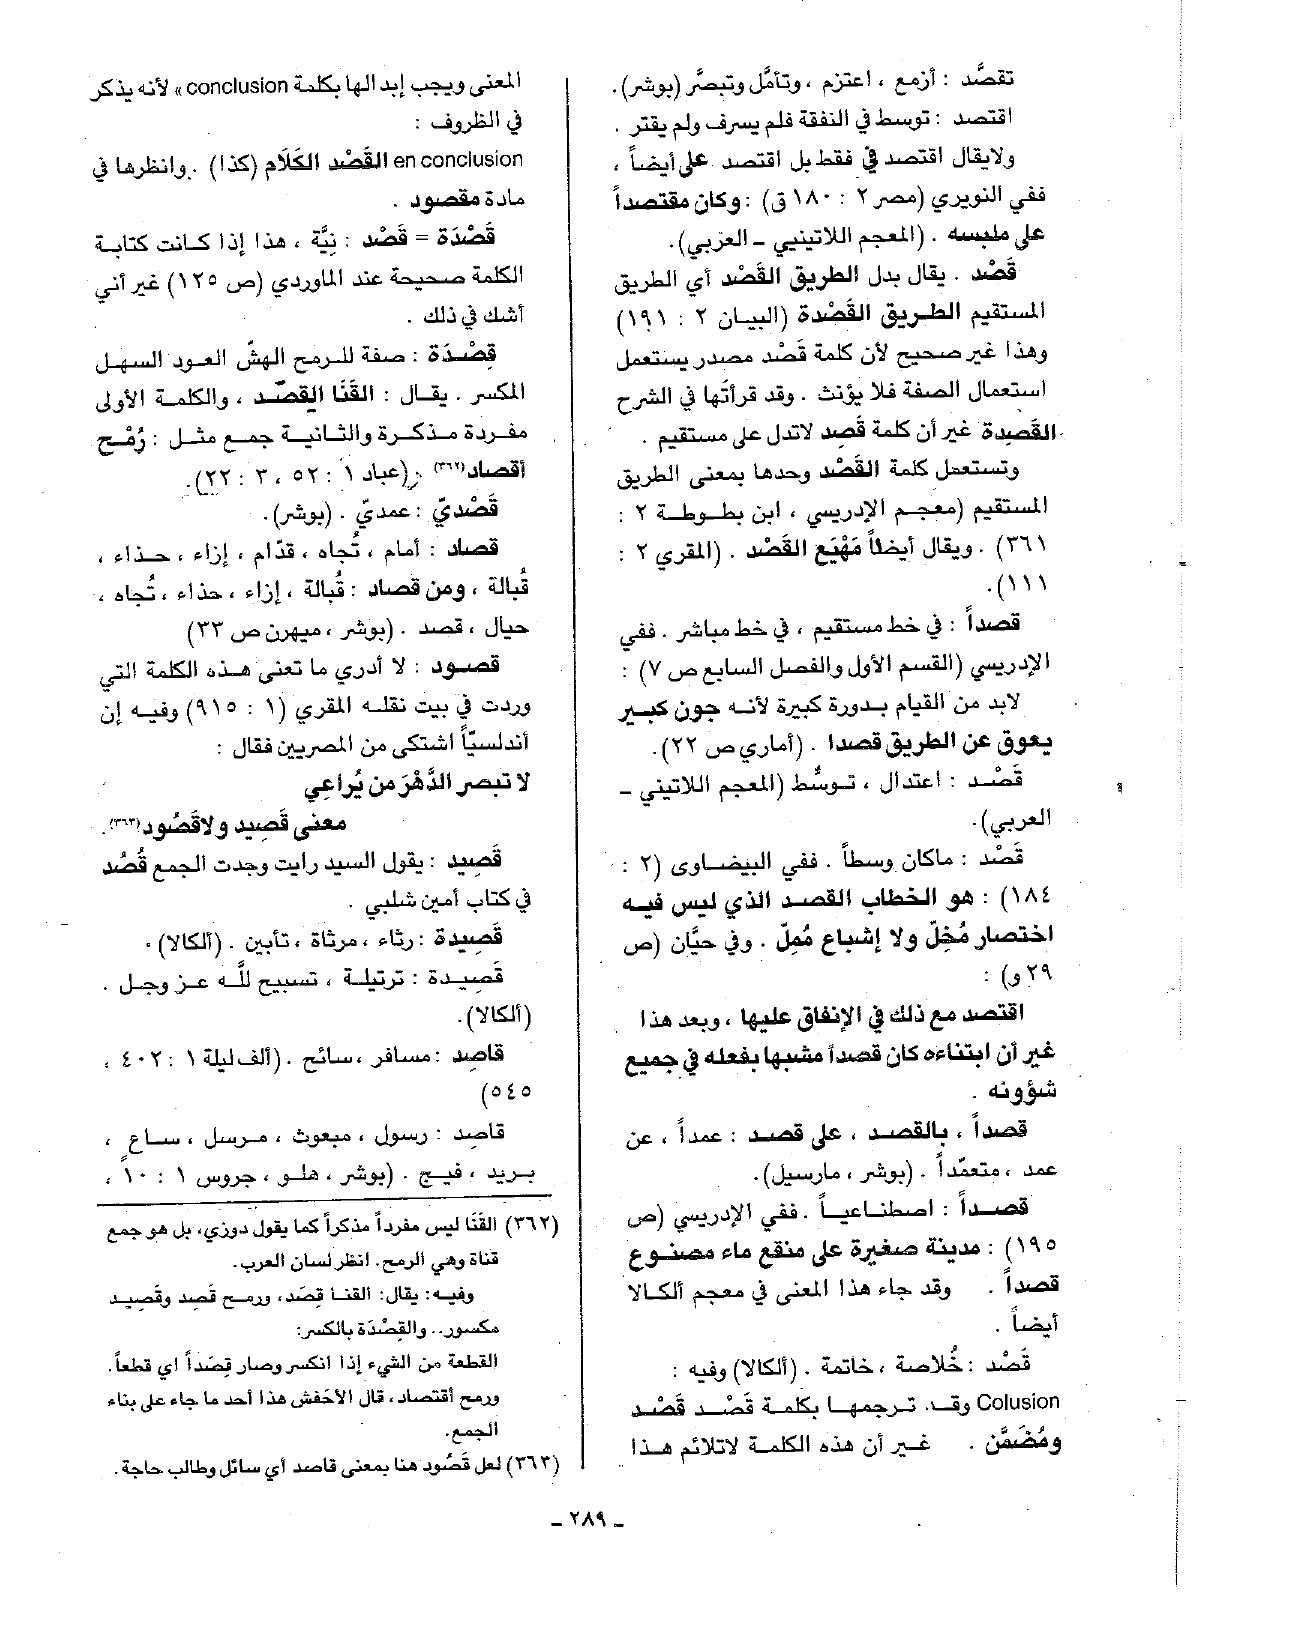 تقصَّد : أزمع ، اعتزم ، وتأمَّل وتبصَّر (بوشر).
اقتصد : توسط في النفقة فلم يسرف ولم يقتر .
ولايقال اقتصد في فقط بل اقتصد على أيضاً ،
ففي النويري (مصر ٢ : ١٨٠ ق) : وكان مقتصداً
على ملبسه . (المعجم اللاتيني ـ العربي).
قَصْد . يقال بدل الطريق القَصْد أي الطريق
المستقيم الطريق القَصْدة (البيان ٢ : ١٩١)
وهذا غير صحيح لأن كلمة قَصْد مصدر يستعمل
استعمال الصفة فلا يؤنث . وقد قرأتها في الشرح
القَصِدة غير أن كلمة قَصِد لاتدل على مستقيم .
وتستعمل كلمة القَصْد وحدها بمعنى الطريق
المستقيم (معجم الإدريسي ، ابن بطوطة ٢ :
٣٦١) . ويقال أيضاً مَهْيَع القَصْد . (المقري ٢ :
١١١).
قصداً : في خط مستقيم ، في خط مباشر . ففي
الإدريسي (القسم الأول والفصل السابع ص ٧) :
لابد من القيام بدورة كبيرة لأنه جون كبير
يعوق عن الطريق قصدا . (أماري ص ٢٢).
قَصْد : اعتدال ، توسُّط (المعجم اللاتيني ـ
العربي).
قَصْد : ماكان وسطاً . ففي البيضاوى (٢ :
١٨٤) : هو الخطاب القصد الذي ليس فيه
اختصار مُخِلّ ولا إشباع مُمِلّ . وفي حيَّان (ص
٢٩ و) :
اقتصد مع ذلك في الإنفاق عليها ، وبعد هذا
غير أن ابتناءه كان قصداً مشبها بفعله في جميع
شؤونه .
قصداً ، بالقصد ، على قصد : عمداً ، عن
عمد ، متعمّداً . (بوشر ، مارسيل).
قصداً : اصطناعياً . ففي الإدريسي (ص
١٩٥) : مدينة صغيرة على منقع ماء مصنوع
قصداً . وقد جاء هذا المعنى في معجم ألكالا
أيضاً .
قَصْد : خُلاصة ، خاتمة . (ألكالا) وفيه :
Colusion وقد ترجمها بكلمة قَصْد قَصْد
ومُضَمَّن . غير أن هذه الكلمة لاتلائم هذا
المعنى ويجب إبدالها بكلمة conclusion » لأنه يذكر
في الظروف :
en conclusion القَصْد الكَلَام (كذا) . وانظرها في
مادة مقصود .
قَصْدَة = قَصْد : نِيَّة ، هذا إذا كانت كتابة
الكلمة صحيحة عند الماوردي (ص ١٢٥) غير أني
أشك في ذلك .
قِصْدَة : صفة للرمح الهشّ العود السهل
المكسر . يقال : القَنَا القِصَد ، والكلمة الأولى
مفردة مذكرة والثانية جمع مثل : رُمْح
أقصاد(٣٦٢) (عباد ١ : ٥٢ ، ٣ : ٢٢).
قَصْديّ : عمديّ . (بوشر).
قصاد : أمام ، تُجاه ، قدّام ، إزاء ، حذاء ،
قُبالة ، ومن قصاد : قُبالة ، إزاء ، حذاء ، تُجاه ،
حيال ، قصد . (بوشر ، ميهرن ص ٣٣)
قصود : لا أدري ما تعنى هذه الكلمة التي
وردت في بيت نقله المقري (١ : ٩١٥) وفيه إن
أندلسيّاً اشتكى من المصريين فقال :
لا تبصر الدَّهْرَ من يُراعِي
معنى قَصِيد ولا قصُود(٣٦٣).
قَصِيد : يقول السيد رايت وجدت الجمع قُصُد
في كتاب أمين شلبي .
قَصِيدة : رثاء ، مرثاة ، تأبين . (ألكالا) .
قَصِيدة : ترتيلة ، تسبيح للّه عز وجل .
(ألكالا).
قاصِد : مسافر ، سائح . (ألف ليلة ١ : ٤٠٢ ،
٥٤٥)
قاصِد : رسول ، مبعوث ، مرسل ، ساعٍ ،
بريد ، فيج . (بوشر ، هلو ، جروس ١ : ١٠ ،
(٣٦٢) القَنَا ليس مفرداً مذكراً كما يقول دوزي، بل هو جمع
قناة وهي الرمح. انظر لسان العرب.
وفيه: يقال: القنا قِصَد، ورمح قَصِد وقَصِيد
مكسور.. والقِصْدَة بالكسر:
القطعة من الشيء إذا انكسر وصار قِصَداً اي قطعاً.
ورمح أقتصاد، قال الأخفش هذا أحد ما جاء على بناء
الجمع.
(٣٦٣) لعل قَصُود هنا بمعنى قاصد أي سائل وطالب حاجة.
ـ ٢٨٩ ـ